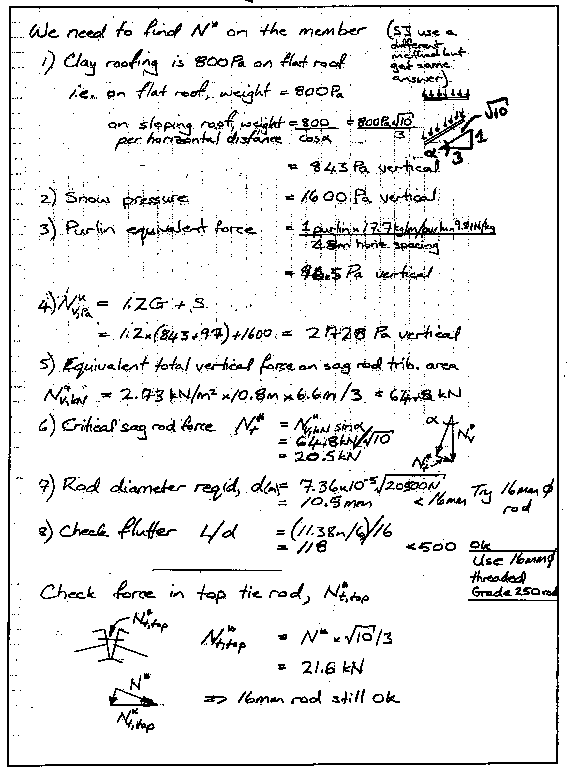 We need to find N* on the member
(SJ use a
different
method but
get same
answer).
1) Clay roofing is 800Pa on flat roof
i.e. on flat roof, weight = 800Pa
on sloping roof, weight = 800/cosα = 800Pa√10/3
per horizontal distance
√10
α
1
3
= 843 Pa vertical
2) Snow pressure = 1600 Pa vertical
3) Purlin equivalent force = 1 purlin x 17.7kg/m/purlin x 9.81N/kg
horiz spacing
= 96.5 Pa vertical
4) N*v,Pa = 1.2G + S
= 1.2x(843+97)+1600 = 2728 Pa vertical
5) Equivalent total vertical force on sag rod trib. area
N*v,kN = 2.73 kN/m² x 10.8m x 6.6m/3 = 64.8 kN
6) Critical sag rod force N*t = N*v,kN sinα
= 64.8kN/√10
= 20.5kN
α
N*v
N*t
7) Rod diameter reqid, d(m) = 7.36x10⁻⁵√20500N
= 10.5mm < 16mm Try 16mm φ
rod
8) Check flutter L/d = (11.38m/6)/16
= 118 < 500 Ok
Use 16mmφ
threaded
Grade 250 rod
Check force in top tie rod, N*t,top
N*t,top
N*t,top = N* x √10/3
= 21.6 kN
N*
N*t,top
⇒ 16mm rod still Ok